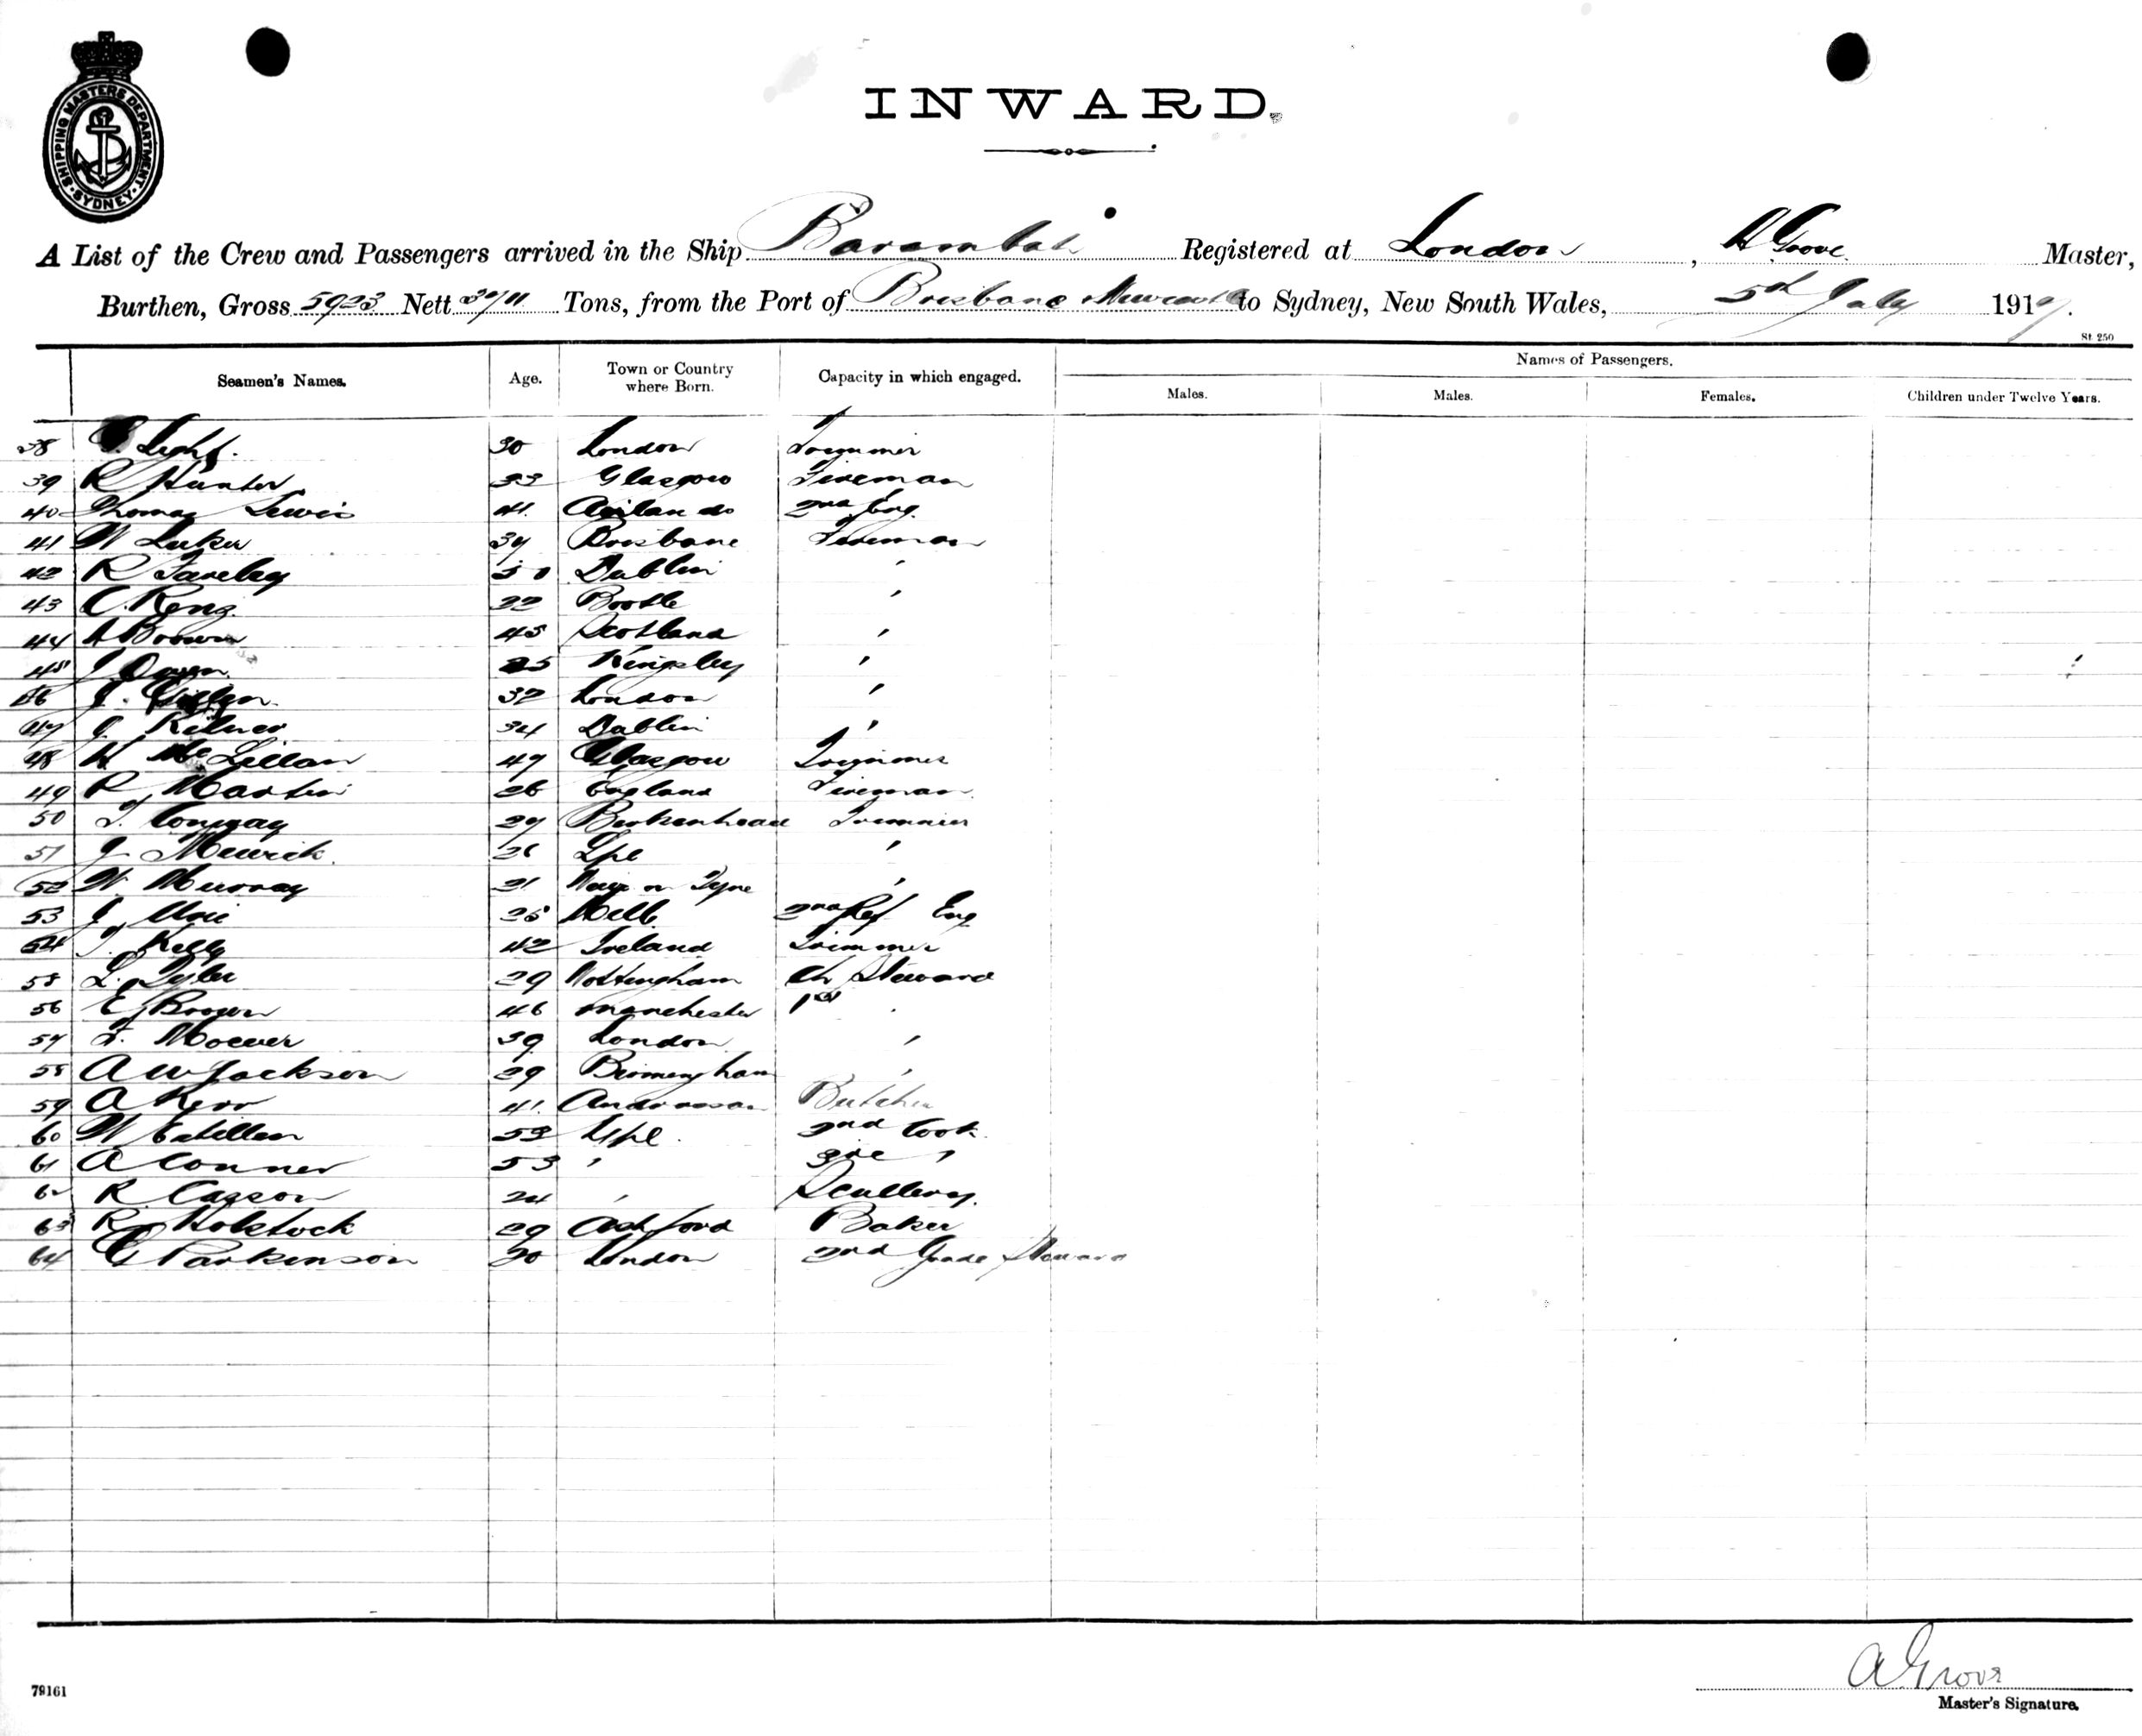 SHIPPING MASTERS DEPARTMENT. SYDNEY
INWARD.
A List of the Crew and Passengers arrived in the Ship Barambah Registered at London, A Grove Master,
Burthen, Gross 5923 Nett Tons, from the Port of Brisbane Newcastle to Sydney, New South Wales, 5th July 1919.
St. 250
Seamen's Names. Age. Town or Country where Born. Capacity in which engaged. Names of Passengers.
Males. Males. Females. Children under Twelve Years.
38 Light. 30 London Trimmer
39 R Hunter 33 Glasgow Fireman
40 Thomas Lewis 41. 2nd Eng.
41 W Luker 34 Brisbane Fireman
42 R 50 Dublin "
43 C. 22 Bootle "
44 A Brown 45 Scotland "
45 J Owen 25 Kingsley "
46 J. 32 London "
47 J Kilner 34 Dublin "
48 H McLellan 47 Glasgow Trimmer
49 R Martin 26 England Fireman
50 T. Conway 29 Birkenhead Trimmer
51 J 26 Lpl "
52 W Murray 21. on Tyne "
53 J 25 Melb. 2nd Ref Eng
54 T. Kelly 42 Ireland Trimmer
55 L. Tyler 29 Nottingham Ch Steward
56 E Brown 46 Manchester 1st "
57 F. 39 London "
58 A W Jackson 29 Birmingham "
59 A Kerr 41. Ardrossan Butcher
60 W 53 Lpl. 2nd Cook
61 A Conner 53 " "
62 R Casson 24 " Scullery.
63 R Holstock 29 Ashford Baker
64 E Parkinson 20 London 2nd Grade Steward
A Grove
79161
Master's Signature.